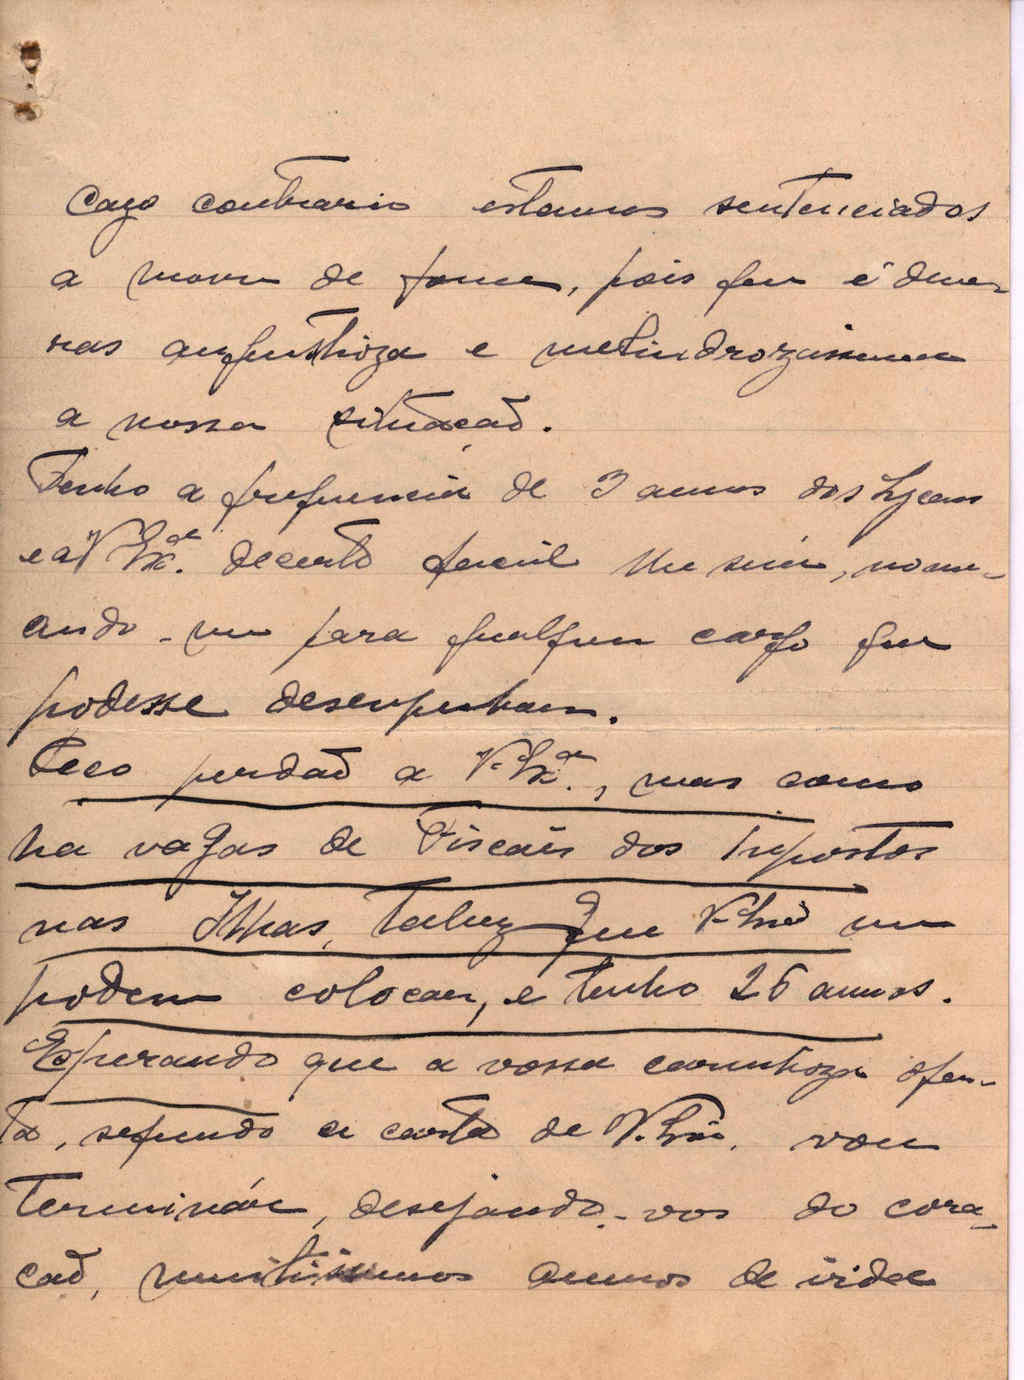 Cazo contrario estamos sentenciados
a morrer de fome, pois que é deve-
ras angustioza e melindrozissima
a nossa situação.
Tenho a frequencia de 3 annos dos Lyceus
e a V. Exª. decerto facil lhe seria, nome-
ando-me para qualquer cargo que
podesse desempenhar.
Peço perdão a V. Exª., mas como
ha vagas de Fiscaes dos Impostos
nas Ilhas, talvez que V. Exª me
podem colocar, e tenho 26 annos.
Esperando que a vossa carinhoza ofer-
ta, segundo a carta de V. Exª. vou
terminár, desejando-vos do cora-
cão, muitissimos annos de vida